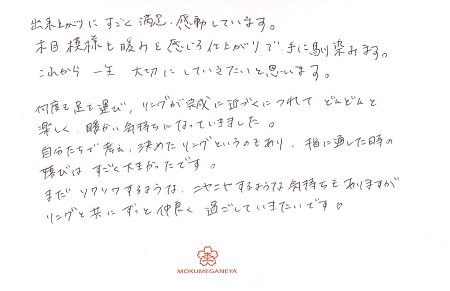 出来上がりにすごく満足、感動しています。
木目模様も暖みを感じる仕上がりで手に馴染みます。
これから一生 大切にしていきたいと思います。
何度も足を運び、リングが完成に近づくにつれて どんどんと
楽しく、暖かい気持ちになっていきました。
自分たちで考え、決めたリングというのもあり、指に通した時の
喜びは すごく大きかったです。
まだ ソワソワするような、ニヤニヤするような気持ちもありますが
リングと共に ずっと仲良く 過ごしていきたいです。
MOKUMEGANEYA